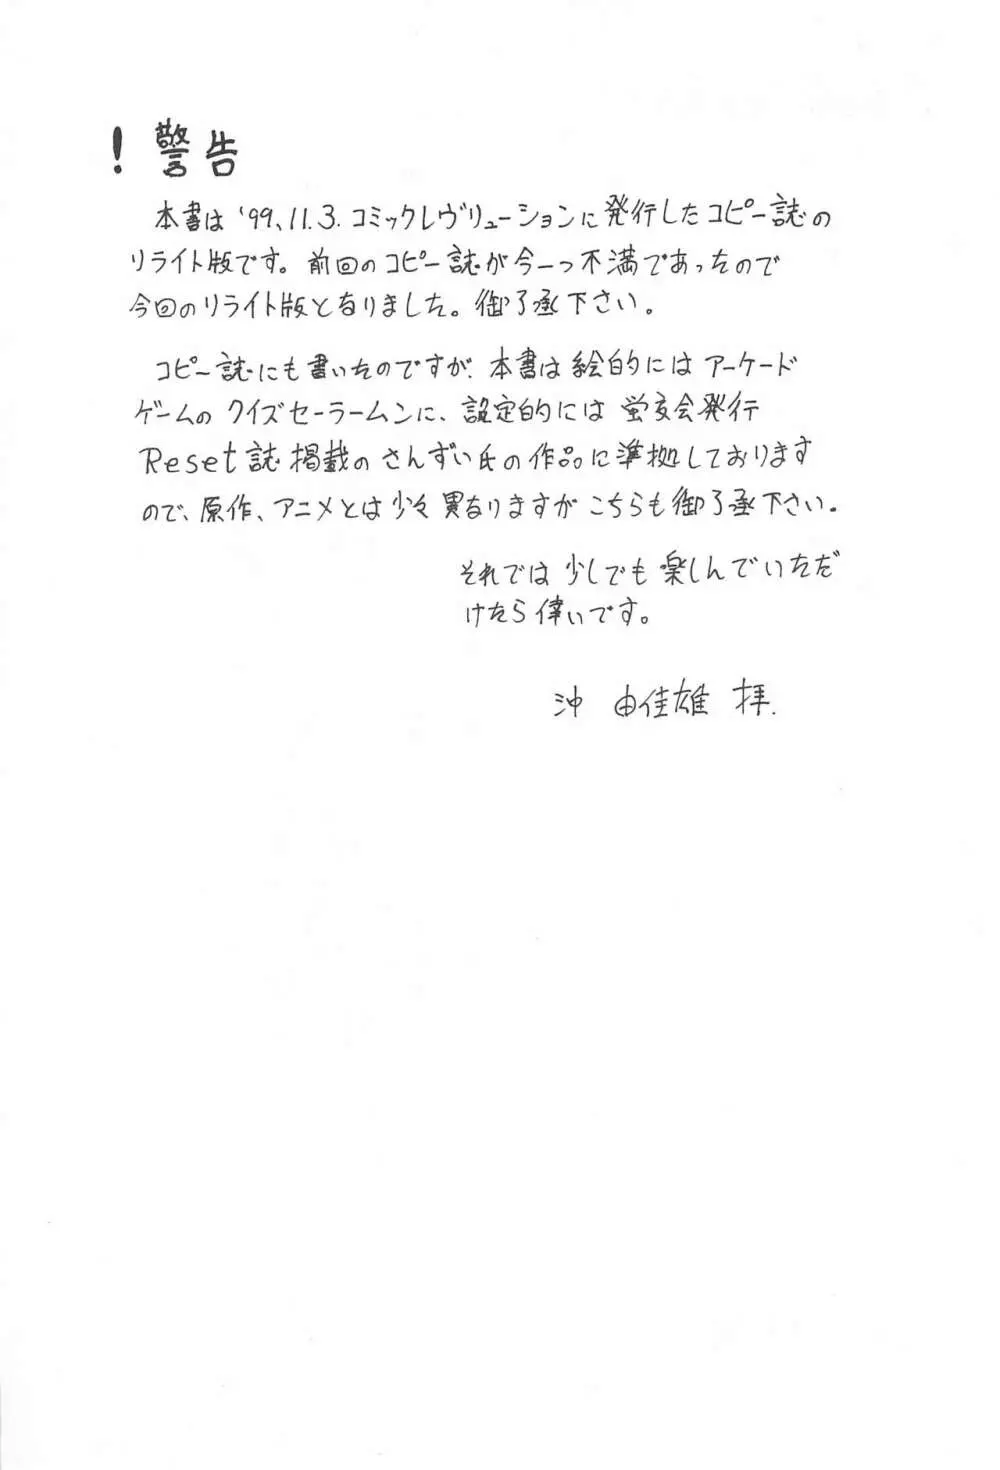 ！警告
本書は'99、11.3.コミックレヴリューションに発行したコピー誌の
リライト版です。前回のコピー誌が今一つ不満であったので
今回のリライト版となりました。御了承下さい。
コピー誌にも書いたのですが、本書は絵的にはアーケード
ゲームのクイズセーラームンに、設定的には蛍友会発行
Reset誌掲載のさんずい氏の作品に準拠しております
ので、原作、アニメとは少々異なりますがこちらも御了承下さい。
それでは少しでも楽しんでいただ
けたら倖いです。
沖 由佳雄 拝.